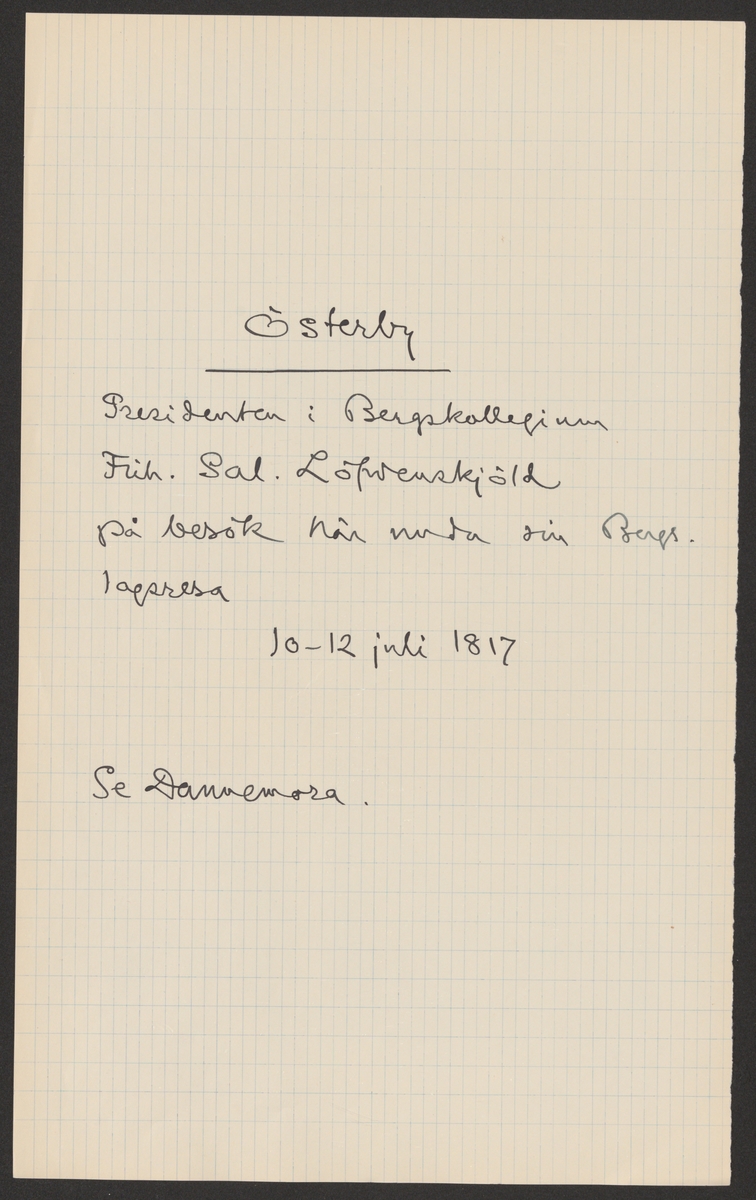 Österby
Presidenten i Bergskollegium
Frih. Sal. Löfvenskjöld
på besök här under sin Bergs-
lagsresa
10-12 juli 1817
Se Dannemora.